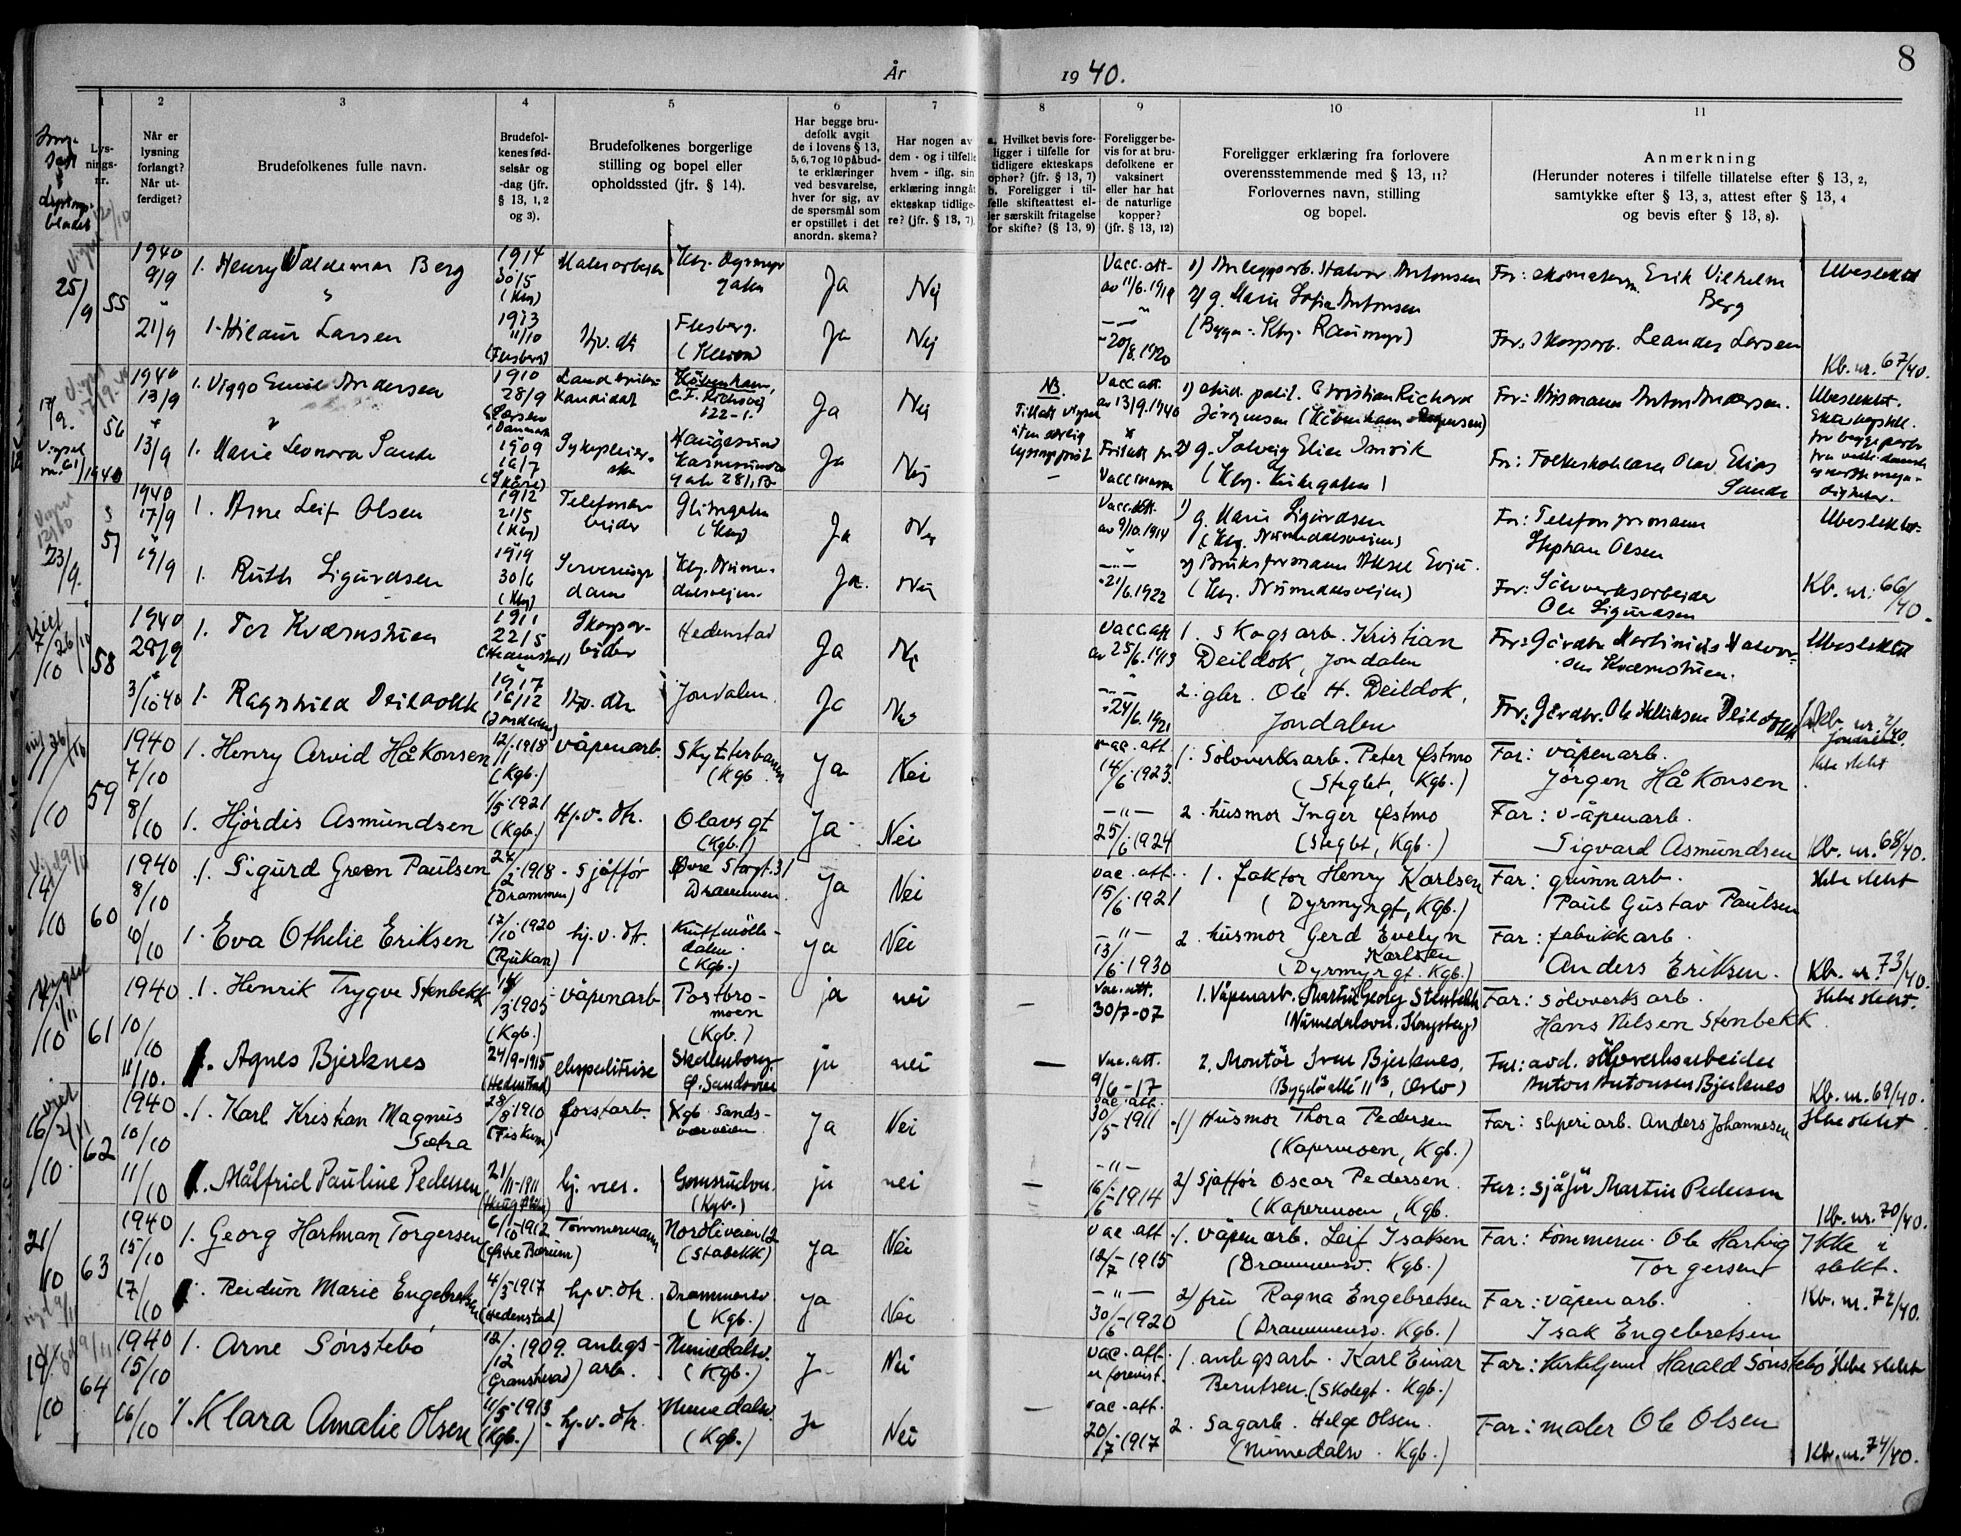 År 1940.
8
1 2 3 4 5 6 7 8 9 10 11
Lys-
nings-
nr.
Når er
lysning
forlangt?
Når ut-
ferdiget?
Brudefolkenes fulle navn.
Brudefol-
kenes fød-
selsår og
-dag (jfr.
§ 13, 1, 2
og 3).
Brudefolkenes borgerlige
stilling og bopel eller
opholdssted (jfr. § 14).
Har begge bru-
defolk avgit
de i lovens § 13,
5, 6, 7 og 10 påbud-
te erklæringer
ved besvarelse,
hver for sig, av
de spørsmål som
er opstillet i det
anordn. skema?
Har nogen av
dem - og i tilfelle
hvem - iflg. sin
erklæring inngått
ekteskap tidlige-
re? (jfr. § 13, 7).
a. Hvilket bevis fore-
ligger i tilfelle for
tidligere ekteskaps
ophør? (jfr. § 13, 7)
b. Foreligger i til-
felle skifteattest el-
ler særskilt fritagelse
for skifte? (§ 13, 9)
Foreligger be-
vis for at bru-
defolkene er
vaksinert
eller har hat
de naturlige
kopper?
(jfr. § 13, 12)
Foreligger erklæring fra forlovere
overensstemmende med § 13, 11?
Forlovernes navn, stilling
og bopel.
Anmerkning
(Herunder noteres i tilfelle tillatelse efter § 13, 2,
samtykke efter § 13, 3, attest efter § 13, 4
og bevis efter § 13, 8).
25/9 55 1940 9/9 1. Henry Valdemar Berg 1914 30/5 (Kbg) Ja Nej Vacc. att. av 11/6.1919 1) Anleggsarb. Halvor Antonsen
2) g. Marie Sofie Antonsen
Far: Erik Vilhelm Berg Ubeslektet
21/9 1. Hildur Larsen 1913 11/10 (Flesberg) Hjv. dtr Flesberg. Ja Nej 20/8.1920
Far: Skogsarb. Leander Larsen Kb. nr. 67/40.
17/9. 56 1940 13/9 1. Viggo Emil Andersen 1910 28/9 Danmark Landbruks-
kandidat København, Ja Nej NB. Vacc att. av 13/9.1940 1) stud. polit. Christian Richard
Jørgensen (København
Far: Anton Andersen. Ubeslektet.
13/9 1. Marie Leonora Sande 1909 16/7 Sykepleier-
ske Haugesund Ja Nej 2) g. Solveig Elise
(Kbg. Kirkegaten)
Far: Folkeskolelærer Olav Elias
Sande
Vigsel nr. 61/1940
23/9. 57 1940 17/9 1. Arne Leif Olsen 1912 21/5 (Kbg) Telefonar-
beider (Kbg) Ja Nej Vacc. att. av 9/10.1914 1) g. Marie Sigurdsen
(Kbg. Numedalsveien)
Far: Telefonformann
Stephan Olsen Ubeslektet.
19/9 1. Ruth Sigurdsen 1919 30/6 (Kbg) Serverings-
dame Kbg. Nume-
dalsveien. Ja. Nej 21/6.1922 2) Bruksformann Aksel Evju.
(Kbg. Numedalsveien)
Far: Sølvverksarbeider
Ole Sigurdsen Kb. nr. 66/40.
7/10 58 1940 28/9 1. Tor Kværnstuen 1911 22/5 (Hedenstad) Skogsar-
beider Hedenstad Ja Nej Vacc att av 25/6.1913 1. Skogsarb. Kristian
Deildok, Jondalen
Far: Gårdbr. Martinius Halvor-
sen Kværnstuen. Ubeslektet
3/10 40 1. Ragnhild Deildokk 1917 16/12 (Jondalen) Hjv. dtr Jondalen Ja Nej 24/6.1921 2. gbr. Ole H. Deildok,
Jondalen
Far: Gårdbr. Ole Helliksen Deildokk Kb. nr. 2/40. Jondalen
59 1940 7/10 1. Henry Arvid Håkonsen 12/1 1918 (Kgb.) våpenarb. Skytterbanen (Kgb. Ja Nei vac. att. 14/6 1923. 1. Sølvverksarb. Peter Østmo
(Steglet, Kgb.)
Far: våpenarb.
Jørgen Håkonsen Ikke slekt
8/10 1. Hjørdis Asmundsen 1/5 1921 (Kgb.) Hj. v. dtr. Olavs gt (Kgb.) Ja Nei 25/6 1924 2. husmor Inger Østmo
(Steglet, Kgb.)
Far: våpenarb.
Sigvard Asmundsen Kb. nr. 68/40.
14/10 60 1940 8/10 1. Sigurd Green Paulsen 24/2 1918 (Drammen) sjåffør Øvre Storgt. 31 Drammen. Ja Nei vac. att. 15/6 1921 1. faktor Henry Karlsen
(Dyrmyrgt, Kgb.)
Far: grunnarb.
Paul Gustav Paulsen Ikke slekt
10/10 1. Eva Othelie Eriksen 17/10 1920 (Rjukan) hj. v. dtr. (Kgb.) Ja Nei 13/6 1930 2. husmor Gerd Evelyn
Karlsen
(Dyrmyrgt. Kgb.)
Far: fabrikkarb.
Anders Eriksen. Kb. nr. 73/40.
61 1940 10/10 1. Henrik Trygve Stenbekk 3 1905 (Kgb.) våpenarb Postbro-
moen (Kgb.) ja nei — Vac. att. 30/7-07 1. Våpenarb. Martin Georg Stenbekk
(Numedalsvn. Kongsberg)
Far: sølvverksarb.
Hans Nilsen Stenbekk Ikke slekt.
11/10. 1. Agnes Bjerknes 24/9-1915 (Hedenstad) ekspeditrise ja nei — Vac. att. 9/6-17 2. Montør Iver Bjerknes,
(Bygdø allé 11, Oslo)
Far: avd. sølvverksarbeider
Anton Antonsen Bjerknes Kb. nr. 69/40.
16/10. 62 1940 10/10 1. Karl Kristian Magnus
Sætra 28/8 1910 (Fiskum) forstarb. Kgb. Sands-
værveien Ja Nei vac. att. 30/5 1911 1) Husmor Thora Pedersen
(Kapermoen, Kgb.)
Far: sliperiarb. Anders Johannesen Ikke slekt
11/10 1. Målfrid Pauline Pedersen 21/11-1911 hj. vær. Gomsrudvn. (Kgb.) ja nei — 16/6 1914 2) sjåffør Oscar Pedersen.
(Kapermoen, Kgb.
Far: sjåfør Martin Pedersen Kb. nr. 70/40.
21/10 63 1940 15/10 1. Georg Hartman Torgersen 6/10-1912 (Østre Bærum) Tømmermann Nordliveien 12 (Stabekk) ja Nei vac. att 12/7 1915 1. våpenarb. Leif Isaksen
(Drammensv. Kgb.)
Far: tømmerm. Ole Hartvig
Torgersen Ikke i
slekt.
17/10 1. Reidun Marie Engebretsen 4/3 1917 (Hedenstad) hj. v. dtr. Drammensv (Kgb.) ja Nei 30/6 1920 2) fru Ragna Engebretsen
(Drammensv. Kgb.)
Far: våpenarb.
Isak Engebretsen Kb. nr. 72/40.
19/10 64 1940 15/10 1. Arne Sønstebø 12/12 1909. (Gransherad) anlegs-
arb. Numedalsv. (Kgb.) Ja Nei vac. att.
er forevist. 1. anlegsarb. Karl Einar
Berntsen. (Skolegt. Kgb.)
Far: Kirketjener Harald Sønstebø Ikke slekt
16/10 1. Klara Amalie Olsen 11/5 1913 (Kgb.) hj. v. dtr. Numedalsv. (Kgb.) Ja Nei — vac. att. 20/7 1917 2. Sagarb. Helge Olsen.
(Numedalsv. Kgb.)
Far: maler Ole Olsen
Kb. nr. 74/40.